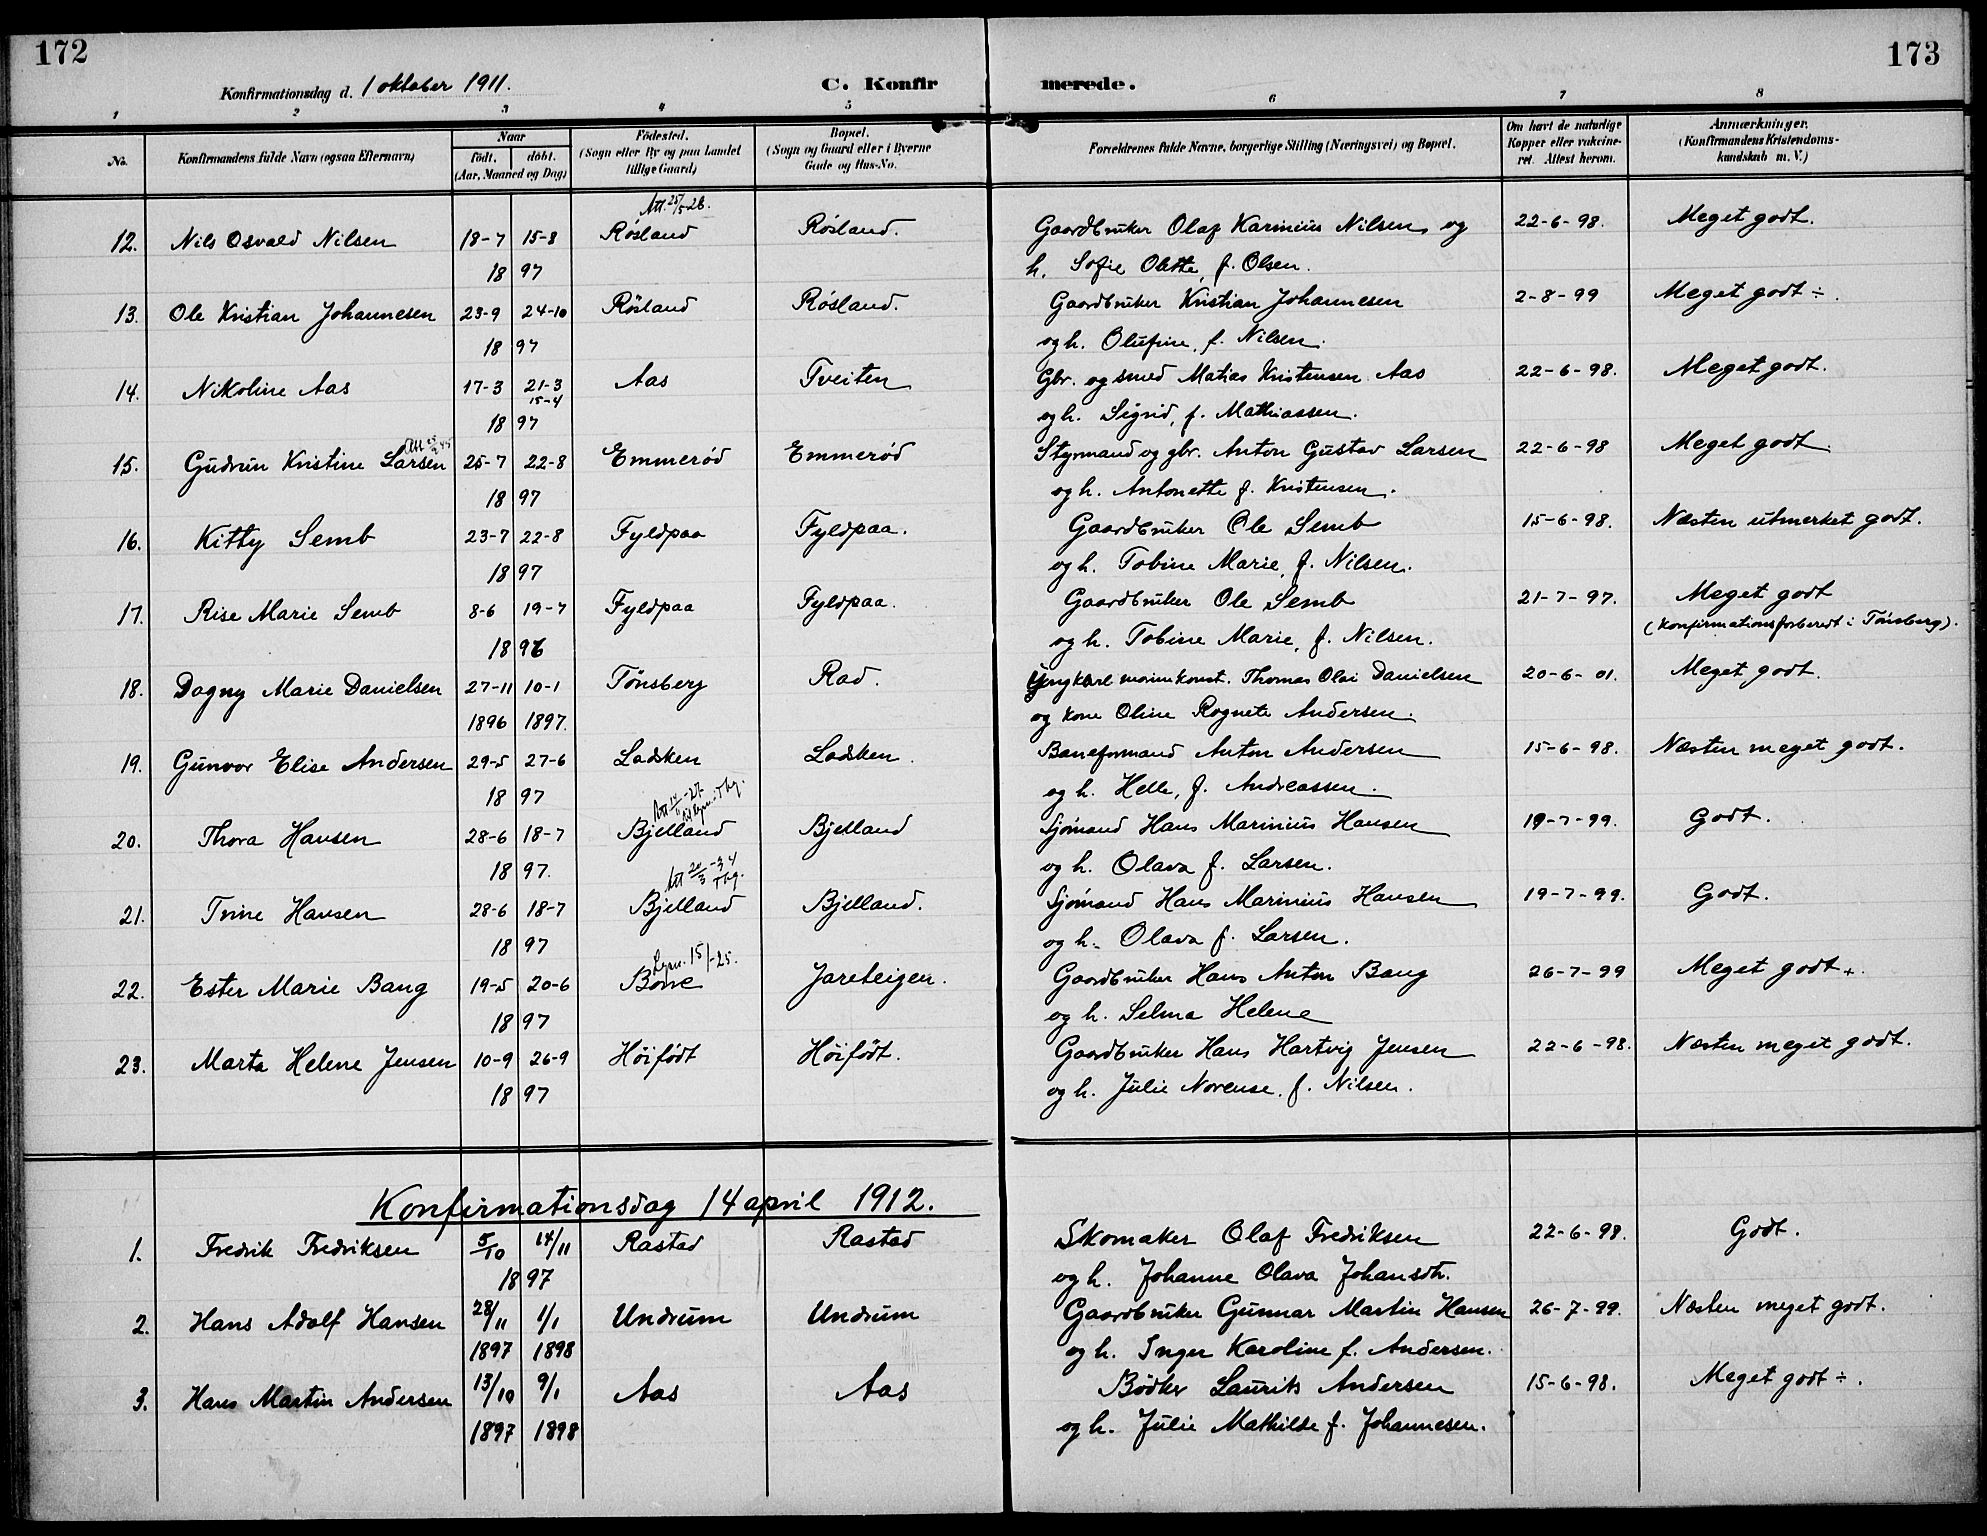 172
173
Konfirmationsdag d. 1 oktober 1911.
C. Konfirmerede.
1 2 3 4 5 6 7 8
No.
Konfirmandens fulde Navn (ogsaa Efternavn)
Naar
födt. döbt.
(Aar, Maaned og Dag)
Födested.
(Sogn eller By og paa Landet
tillige Gaard)
Bopæl.
(Sogn og Gaard eller i Byerne
Gade og Hus-No.
Forældrenes fulde Navne, borgerlige Stilling (Næringsvei) og Bopæl.
Om havt de naturlige
Kopper eller vakcine-
ret. Attest herom.
Anmærkninger.
(Konfirmandens Kristendoms-
kundskab m. V.)
Att. 25/5-26.
12. Nils Osvald Nilsen 18-7 15-8 Røsland Røsland. Gaardbruker Olaf Karinius Nilsen og 22-6-98. Meget godt.
18 97 h. Sofie Olette, f. Olsen.
13. Ole Kristian Johannesen 23-9 24-10 Røsland Røsland. Gaardbruker Kristian Johannesen 2-8-99 Meget godt ÷.
18 97 og h. Olufine, f. Nilsen.
14. Nikoline Aas 17-3 21-3 Aas Tveiten Gbr. og smed Matias Kristensen Aas 22-6-98. Meget godt.
15-4
18 97 og h. Sigrid, f. Mathiassen.
15. Gudrun Kristine Larsen 25-7 22-8 Emmerød Emmerød Styrmand og gbr. Anton Gustav Larsen 22-6-98 Meget godt.
18 97 og h. Antonette f. Kristensen.
16. Kitty Semb 23-7 22-8 Fyldpaa Fyldpaa. Gaardbruker Ole Semb 15-6-98. Næsten utmerket godt.
18 97 og h. Tobine Marie, f. Nilsen.
17. Rise Marie Semb 8-6 19-7 Fyldpaa Fyldpaa. Gaardbruker Ole Semb 21-7-97. Meget godt
(Konfirmationsforberedt i Tønsberg).
18 96 og h. Tobine Marie, f. Nilsen.
18. Dagny Marie Danielsen 27-11 10-1 Tønsberg Rad. Ungkarl Thomas Olai Danielsen 20-6-01. Meget godt.
1896 1897. og kone Oline Rognete Andersen.
19. Gunvor Elise Andersen 29-5 27-6 Ladsken Ladsken. Baneformand Anton Andersen 15-6-98. Næsten meget godt.
18 97 og h. Helle, f. Andreassen.
20. Thora Hansen 28-6 18-7 Bjelland Bjelland Sjømand Hans Marinius Hansen 19-7-99. Godt.
18 97. og h. Olava f. Larsen.
Att 20/3-34 Tbg.
21. Trine Hansen 28-6 18-7 Bjelland Bjelland. Sjømand Hans Marinius Hansen 19-7-99. Godt.
18 97 og h. Olava f. Larsen.
22. Ester Marie Bang 19-5 20-6 Borre Jareteigen. Gaardbruker Hans Anton Bang 26-7-99 Meget godt +.
18 97 og h. Selma Helene
23. Marta Helene Jensen 10-9 26-9 Høifødt Høifødt. Gaardbruker Hans Hartvig Jensen 22-6-98. Næsten meget godt.
18 97 og h. Julie Norense. f. Nilsen.
Konfirmationsdag 14 april 1912.
1. Fredrik Fredriksen 5/10 14/11 Rastad Rastad Skomaker Olaf Fredriksen 22-6-98. Godt.
18 97 og h. Johanne Olava Johansdtr.
2. Hans Adolf Hansen 28/11 1/1 Undrum Undrum Gaardbruker Gunnar Martin Hansen 26-7-99. Næsten meget godt.
1897 1898 og h. Inger Karoline f. Andersen.
3. Hans Martin Andersen 13/10 9/1 Aas Aas Bødker Laurits Andersen 15-6-98. Meget godt ÷.
1897 1898 og h. Julie Mathilde f. Johannesen.